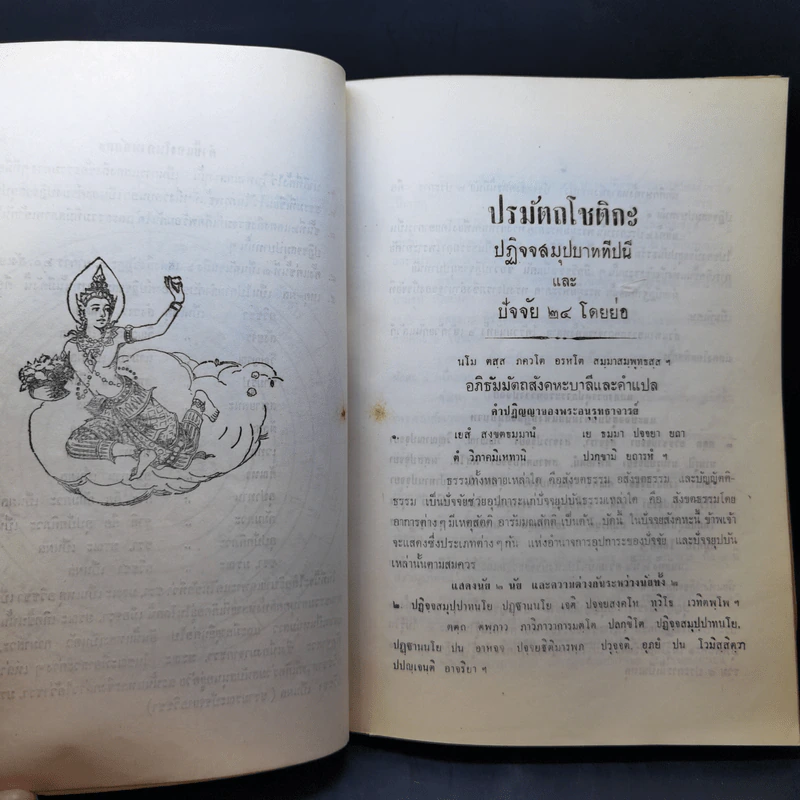 ปรมัตถโชติกะ
ปฏิจจสมุปบาททีปนี
และ
ปัจจัย ๒๔ โดยย่อ
นโม ตสฺส ภควโต อรหโต สมฺมาสมฺพุทฺธสฺส ฯ
อภิธัมมัตถสังคหะบาลีและคำแปล
คำปฏิญญาของพระอนุรุทธาจารย์
๑. เยสํ สงฺขตธมฺมานํ เย ธมฺมา ปจฺจยา ยถา
ตํ วิภาคมิเหทานิ ปวกฺขามิ ยถารหํ ฯ
ธรรมทั้งหลายเหล่าใด คือสังขตธรรม อสังขตธรรม และบัญญัตติ-
ธรรม เป็นปัจจัยช่วยอุปการะแก่ปัจจยุปบันธรรมเหล่าใด คือ สังขตธรรมโดย
อาการต่างๆ มีเหตุสัตติ อารัมมณสัตติ เป็นต้น บัดนี้ ในปัจจยสังคหะนี้ ข้าพเจ้า
จะแสดงซึ่งประเภทต่างๆ กัน แห่งอำนาจการอุปการะของปัจจัย และปัจจยุปบัน
เหล่านั้นตามสมควร
แสดงนัย ๒ นัย และความต่างกันระหว่างนัยทั้ง ๒
๒. ปฏิจฺจสมุปฺปาทนโย ปฏฺฐานนโย เจติ ปจฺจยสงฺคโห ทุวิโธ เวทิตพฺโพ ฯ
ตตฺถ ตพฺภาว ภาวีภาวาการมตฺโต ปลกฺขิโต ปฏิจฺจสมุปฺปาทนโย,
ปฏฺฐานนโย ปน อาหจฺจ ปจฺจยฏฺฐิติมารพฺภ ปวุจฺจติ, อุภยํ ปน โวมิสฺสิตฺวา
ปปญฺเจนฺติ อาจริยา ฯ